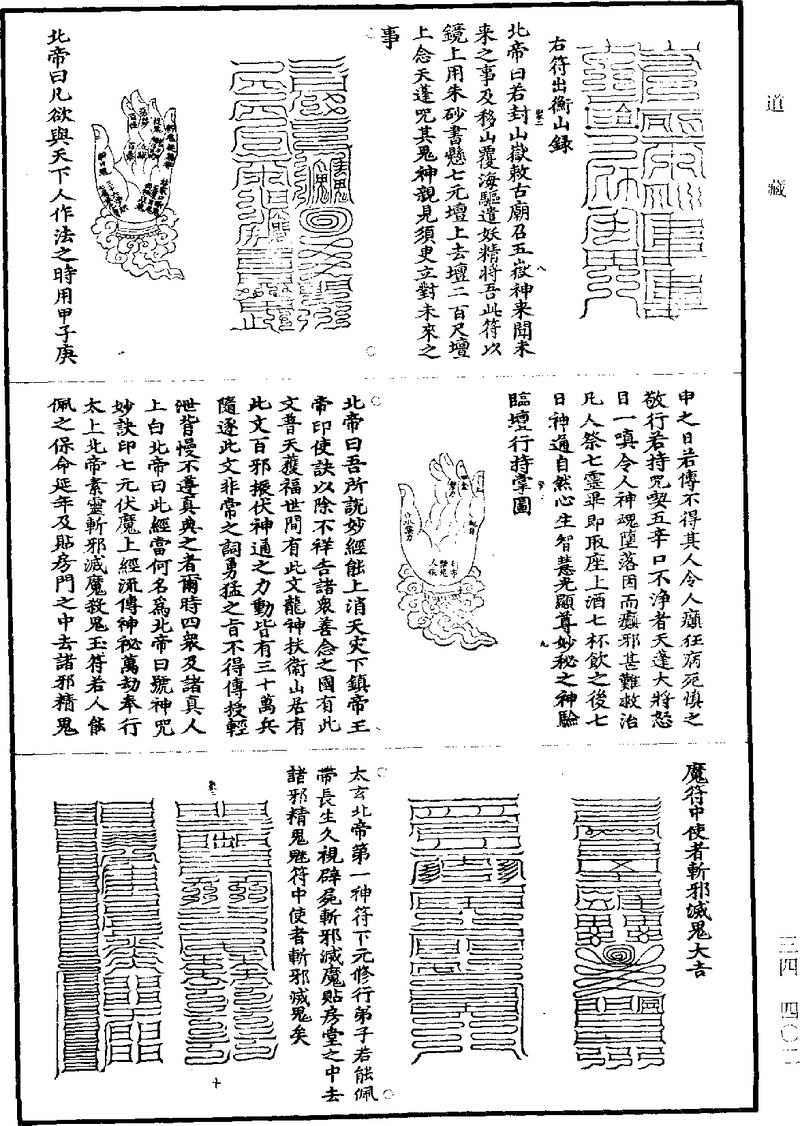 道藏
三四 四〇二
右符出衡山錄
北帝曰若封山嶽敕古廟召五嶽神来聞未
来之事及移山覆海驅遣妖精將吾此符以
鏡上用朱砂書懸七元壇上去壇二百尺壇
上念天蓬咒其鬼神親見須臾立對未來之
事
北帝曰凡欲與天下人作法之時用甲子庚
申之日若傳不得其人令人癲狂病死慎之
敬行若持咒喫五辛口不淨者天蓬大將怒
目一嗔令人神魂墮落因而癲邪甚難救治
凡人祭七靈畢即取座上酒七杯飲之後七
日神通自然心生智慧光顯尊妙秘之神驗
臨壇行持掌圖
北帝曰吾所說妙經能上消天災下鎮帝王
帝印使訣以除不祥告諸衆善念之國有此
文普天獲福世間有此文龍神扶衛山居有
此文百邪振伏神通之力動皆有三十萬兵
隨逐此文非常之詞勇猛之旨不得傳授輕
泄背慢不遵真典之者爾時四衆及諸真人
上白北帝曰此經當何名爲北帝曰號神咒
妙訣印七元伏魔上經流傳神秘萬劫奉行
太上北帝素靈斬邪滅魔殺鬼玉符若人能
佩之保命延年及貼房門之中去諸邪精鬼
魔符中使者斬邪滅鬼大吉
太玄北帝第一神符下元修行弟子若能佩
帶長生久視辟屍斬邪滅魔貼房堂之中去
諸邪精鬼魅符中使者斬邪滅鬼矣